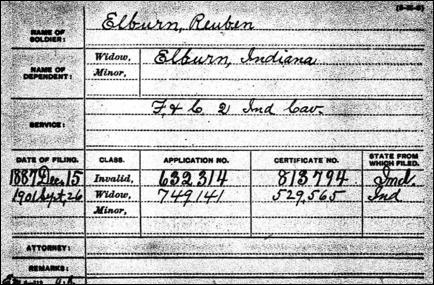 NAME OF SOLDIER: Elburn, Reuben
NAME OF DEPENDENT: Widow, Elburn, Indiana
Minor,
SERVICE: F. & C. 2 Ind Cav.
DATE OF FILING. CLASS. APPLICATION NO. CERTIFICATE NO. STATE FROM WHICH FILED.
1887 Dec, 15 Invalid, 632314 813794 Ind.
1901 Sept, 26 Widow, 749141 529,565 Ind
Minor,
ATTORNEY:
REMARKS: